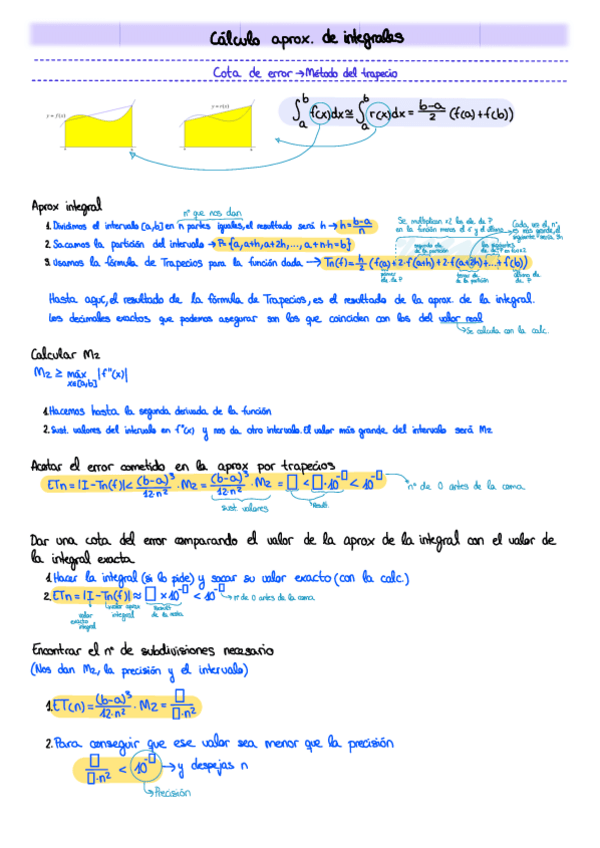 Cálculo aprox. de integrales
Cota de error → Método del trapecio
y = f(x)
y = r(x)
∫_a^b f(x)dx ≅ ∫_a^b r(x)dx = (b-a)/2 (f(a)+f(b))
Aprox integral
nº que nos dan
1. Dividimos el intervalo [a,b] en n partes iguales, el resultado será h → h = (b-a)/n
2. Sacamos la partición del intervalo → P = {a, a+h, a+2h, ..., a+n·h=b}
Se multiplican ×2 los de P
en la función menos el 1º y el último
3. Usamos la fórmula de Trapecios para la función dada → Tn(f) = h/2 (f(a)+2·f(a+h)+2·f(a+2h)+...+f(b))
primero de P
último de P
Hasta aquí, el resultado de la fórmula de Trapecios, es el resultado de la aprox de la integral.
Los decimales exactos que podemos asegurar son los que coinciden con los del valor real
→ Se calcula con la calc.
Calcular M2
M2 ≥ máx |f''(x)|
x∈[a,b]
1. Hacemos hasta la segunda derivada de la función
2. Sust. valores del intervalo en f''(x) y nos da otro intervalo. El valor más grande del intervalo será M2
Acotar el error cometido en la aprox por trapecios
ETn = |I-Tn(f)| < (b-a)³/12·n² · M2 = (b-a)³/12·n² · M2 = □ < □·10^-□ < 10^-□ → nº de 0 antes de la coma
sust. valores
result.
Dar una cota del error comparando el valor de la aprox de la integral con el valor de
la integral exacta
1. Hacer la integral (si lo pide) y sacar su valor exacto (con la calc.)
2. ETn = |I-Tn(f)| ≈ □ × 10^-□ < 10^-□ → nº de 0 antes de la coma
valor exacto integral
valor aprox integral
Resultado de la resta
Encontrar el nº de subdivisiones necesario
(Nos dan M2, la precisión y el intervalo)
1. ET(n) = (b-a)³/12·n² · M2 = □/□·n²
2. Para conseguir que ese valor sea menor que la precisión
□/□·n² < 10^-□ → y despejas n
→ Precisión